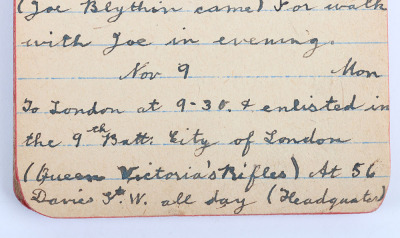 (Joe Blythin came) For walk
with Joe in evening.
Nov 9 Mon
To London at 9-30. & enlisted in
the 9th Batt: City of London
(Queen Victoria's Rifles) At 56
Davies St. W. all day (Headquater)